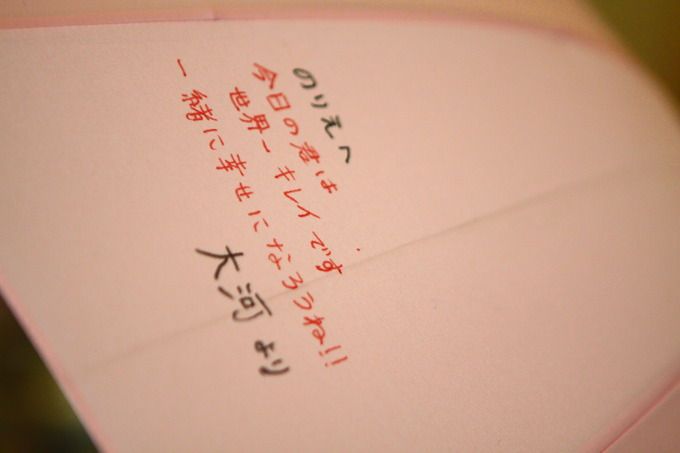 のりえへ
今日の君は
世界一キレイです
一緒に幸せになろうね!!
大河より